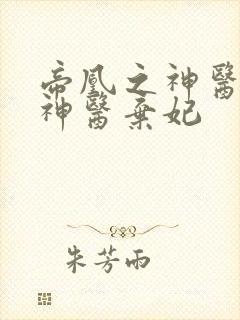 帝凰之神醫
神醫棄妃
朱芳雨